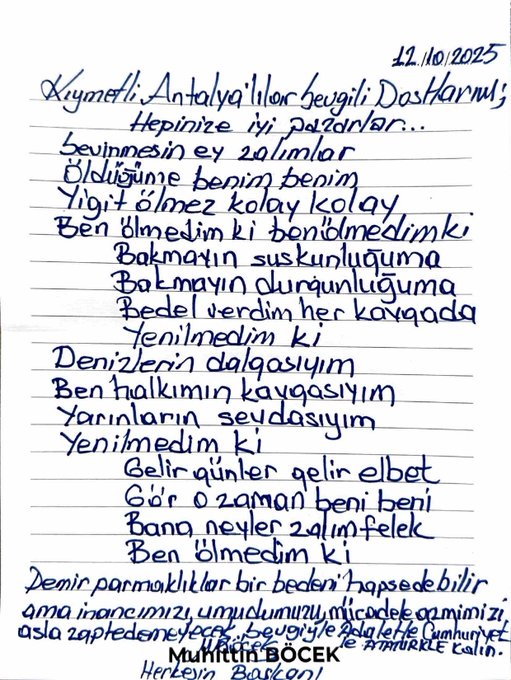 12/10/2025
Kıymetli Antalya'lılar sevgili Dostlarım;
Hepinize iyi pazarlar...
Sevinmesin ey zalımlar
Öldüğüme benim benim
Yiğit ölmez kolay kolay
Ben ölmedim ki ben ölmedim ki
Bakmayın suskunluğuma
Bakmayın durgunluğuma
Bedel verdim her kavgada
Yenilmedim ki
Denizlerin dalgasıyım
Ben halkımın kavgasıyım
Yarınların sevdasıyım
Yenilmedim ki
Gelir günler gelir elbet
Gör o zaman beni beni
Bana neyler zalım felek
Ben ölmedim ki
Demir parmaklıklar bir bedeni hapsedebilir
ama inancımızı, umudumuzu, mücadele azmimizi
asla zaptedemeyecek. Sevgiyle Adaletle Cumhuriyet
le ATATÜRKLE kalın.
M.BÖCEK
Muhittin BÖCEK
Herkesin Başkanı